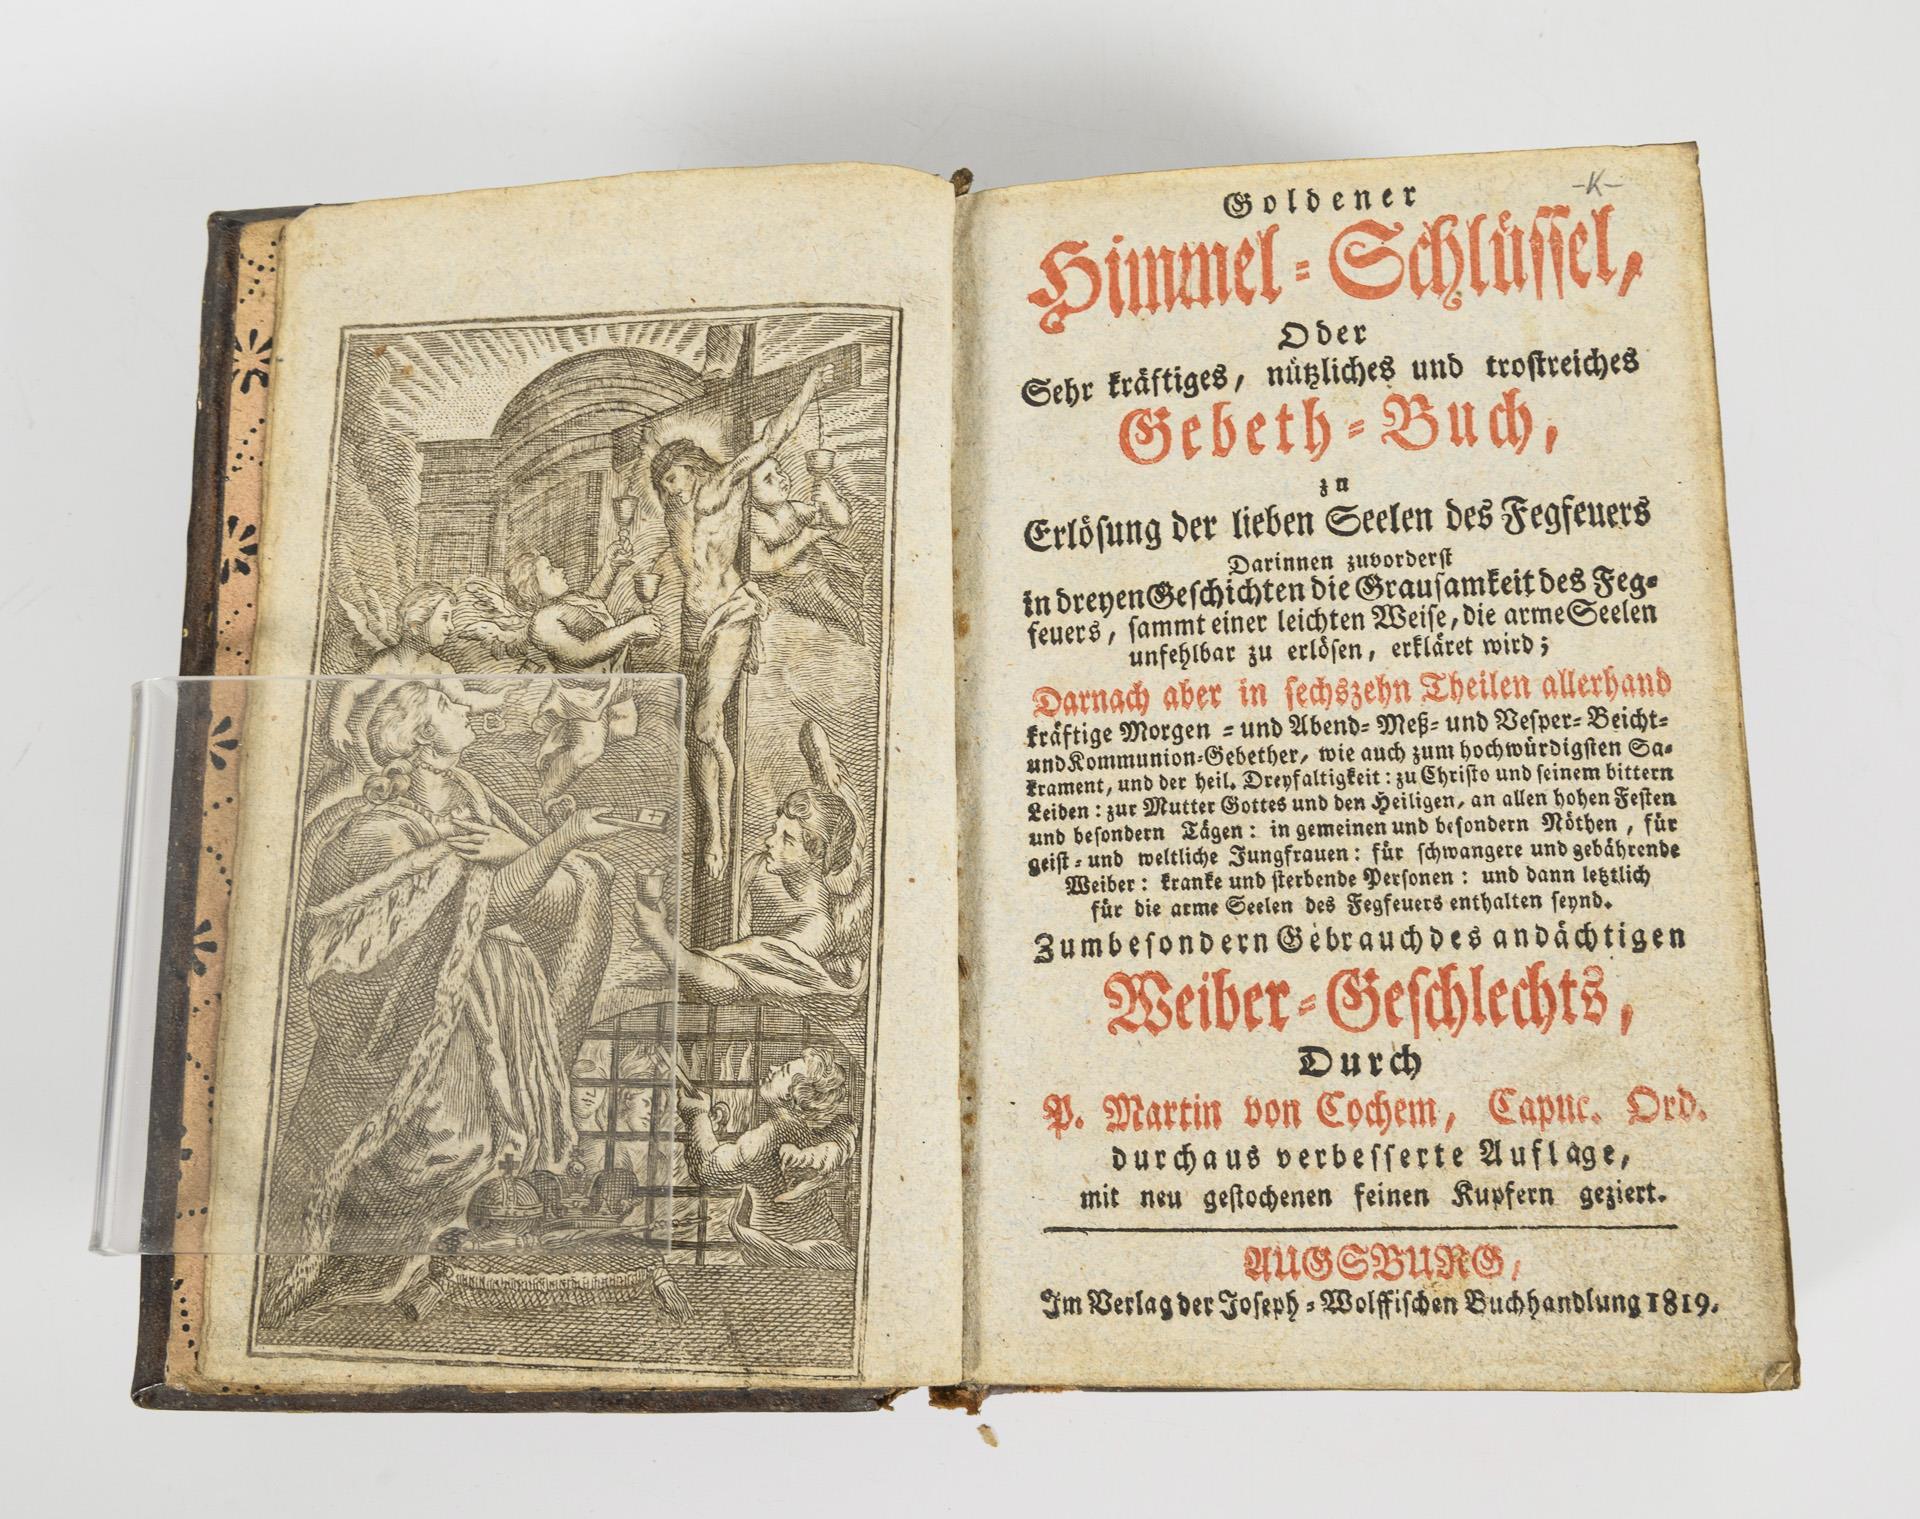 -K-
Goldener
Himmel=Schlüssel,
Oder
Sehr kräftiges, nützliches und trostreiches
Gebeth=Buch,
zu
Erlösung der lieben Seelen des Fegfeuers
Darinnen zuvorderst
in dreyen Geschichten die Grausamkeit des Feg=
feuers, sammt einer leichten Weise, die arme Seelen
unfehlbar zu erlösen, erkläret wird;
Darnach aber in sechszehn Theilen allerhand
kräftige Morgen = und Abend= Meß= und Vesper= Beicht=
und Kommunion=Gebether, wie auch zum hochwürdigsten Sa=
krament, und der heil. Dreyfaltigkeit: zu Christo und seinem bittern
Leiden: zur Mutter Gottes und den Heiligen, an allen hohen Festen
und besondern Tägen: in gemeinen und besondern Nöthen, für
geist= und weltliche Jungfrauen: für schwangere und gebährende
Weiber: kranke und sterbende Personen: und dann letztlich
für die arme Seelen des Fegfeuers enthalten seynd.
Zum besondern Gebrauch des andächtigen
Weiber=Geschlechts,
Durch
P. Martin von Cochem, Capuc. Ord.
durchaus verbesserte Auflage,
mit neu gestochenen feinen Kupfern geziert.
AUGSBURG,
Im Verlag der Joseph=Wolffischen Buchhandlung 1819.